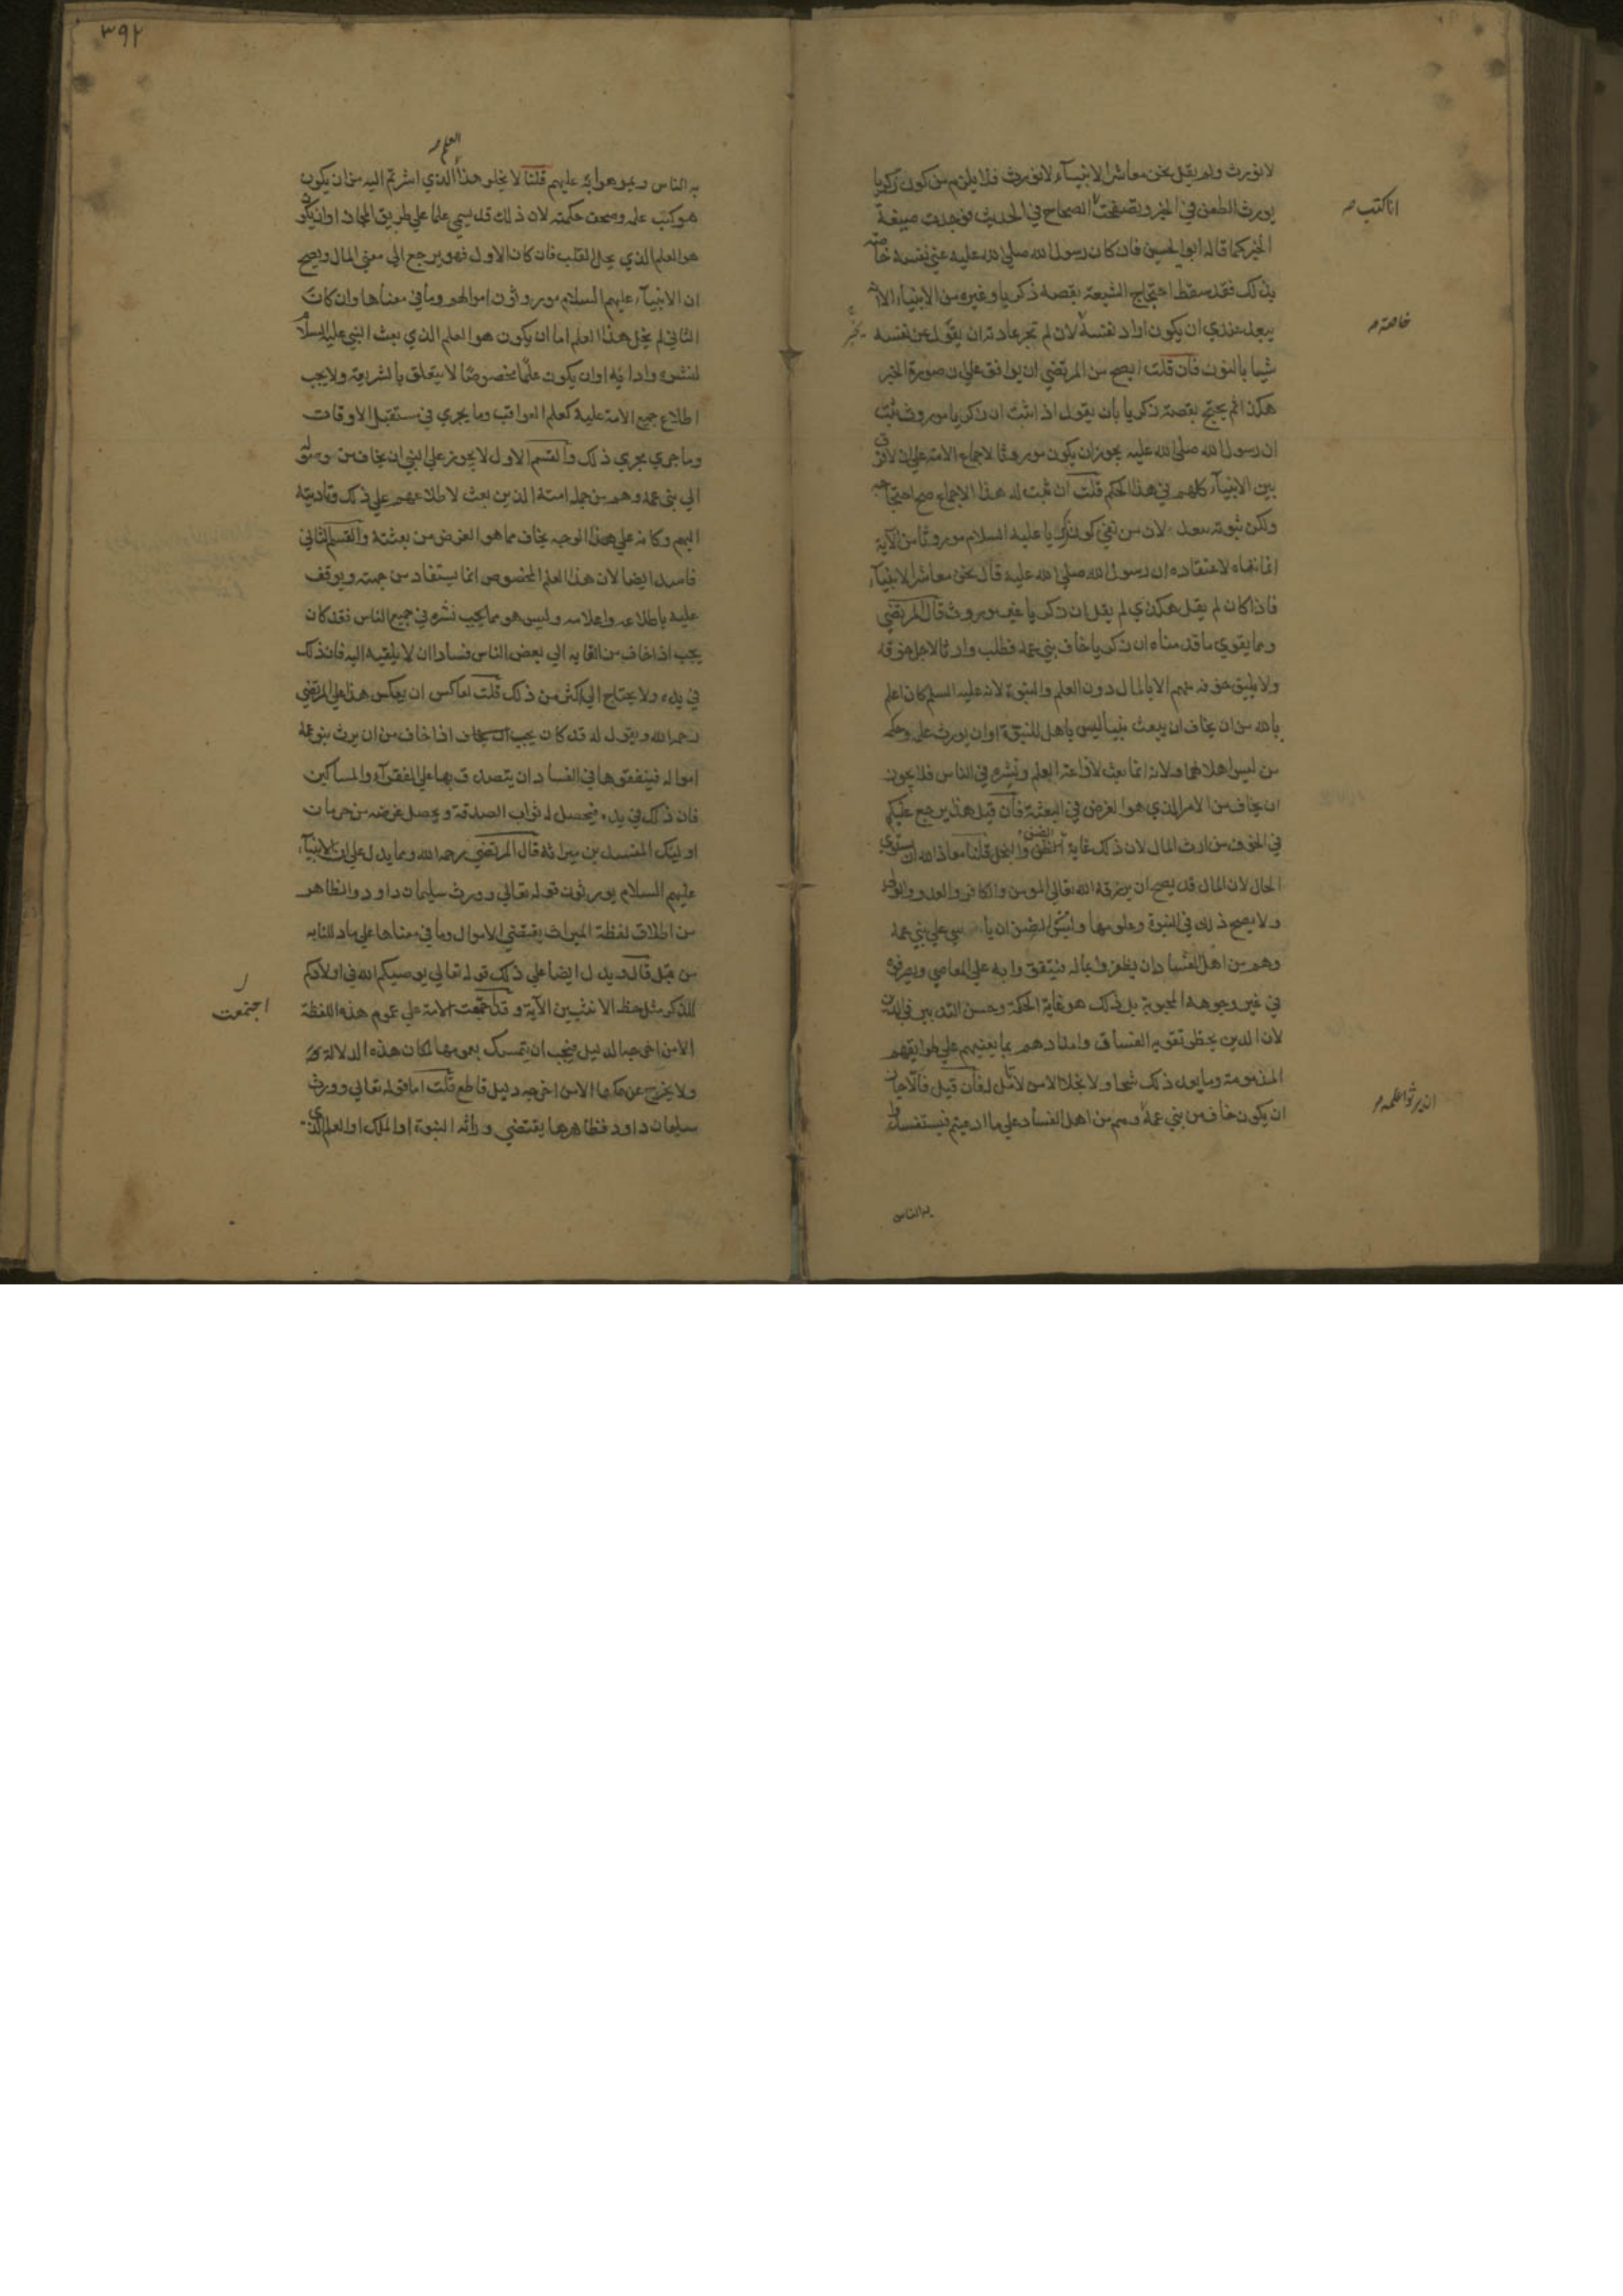 لا نورث ولم يقل نحن معاشر الانبيآء لا نورث فلا يلزم من كون زكريا
يورث الطعن في الخبر وتصفحت الصحاح في الحديث فوجدت صيغة
الخبر كما قاله ابو الحسين فان كان رسول الله صلى الله عليه عنى نفسه خاصة
بذلك فقد سقط احتجاج الشيعة بقصة زكريا وغيره من الانبياء الا انه
يبعد عندي ان يكون اراد نفسه لان لم تجر عادته ان يقول عن نفسه
شيا بالنون فان قلت ايصح من المرتضي ان يوافق على ان صورة الخبر
هكذا ثم يحتج بقصة زكريا بان يقول اذا ثبت ان زكريا موروث ثبت
ان رسول الله صلى الله عليه يجوز ان يكون موروثا لاجماع الامة على ان لا فرق
بين الانبيآء كلهم في هذا الحكم قلت ان ثبت له هذا الاجماع صح احتجاجه
ولكن ثبوته يبعد لان من نفى كون زكريا عليه السلام موروثا من الآية
انما نفاه لاعتقاده ان رسول الله صلى الله عليه قال نحن معاشر الانبيآء
فاذا كان لم يقل هكذي لم يقل ان زكريا غير موروث قال المرتضي
ومما يقوي ما قدمناه ان زكريا خاف بني عمه فطلب وارثا لاجل خوفه
ولا يليق خوفه منهم الا بالمال دون العلم والنبوة لانه عليه السلم كان اعلم
بالله من ان يخاف ان يبعث نبيا ليس باهل للنبوة او ان يورث علمه وحكمه
من ليس اهلا لهما ولانه انما بعث لاذاعة العلم ونشره في الناس فلا يجوز
ان يخاف من الامر الذي هو الغرض في البعثة فان قيل هذا يرجع عليكم
في الخوف من ارث المال لان ذلك غاية الضن والبخل قلنا معاذ الله ان يستوي
الحال لان المال قد يصح ان يرزقه الله تعالى المومن والكافر والعدو والولي
ولا يصح ذلك في النبوة وعلومها وليس من الضن ان ياسى على بني عمه
وهم من اهل الفساد ان يظفروا بماله فينفقوا به على المعاصي ويصرفوه
في غير وجوهه المحبوبة بل ذلك هو غاية الحكمة وحسن التدبير في الدين
لان الدين يحظر تقوية الفساق وامدادهم بما يعينهم على طرايقهم
المذمومة وما يعد ذلك شحا ولا بخلا الا من لا تامل له فان قيل فالا جاز
ان يكون خاف من بني عمه وهم من اهل الفساد على ما ادعيتم فيستفسدوا
به الناس
انا كتب صـ
خاصة صـ
ان يرثوا علمه صـ
٣٩٢
العلم صـ
به الناس ويموهوا به عليهم قلنا لا يخلو هذا الذي اشرتم اليه من ان يكون
هو كتب علمه وصحف حكمته لان ذلك قد يسمي علما على طريق المجاز او ان يكون
هو العلم الذي يحل القلب فان كان الاول فهو يرجع الى معنى المال ويصح
ان الانبيآء عليهم السلام موروثون اموالهم وما في معناها وان كان
الثاني لم يخل هذا العلم اما ان يكون هو العلم الذي بعث النبي عليه السلام
لنشره وادايه او ان يكون علما مخصوصا لا يتعلق بالشريعة ولا يجب
اطلاع جميع الامة عليه كعلم العواقب وما يجري في مستقبل الاوقات
وما جري مجري ذلك والقسم الاول لا يجوز على النبي ان يخاف من وصوله
الى بني عمه وهم من جملة امته الذين بعث لاطلاعهم على ذلك وتاديته
اليهم وكانه على هذا الوجه يخاف مما هو الغرض من بعثته والقسم الثاني
فاسد ايضا لان هذا العلم المخصوص انما يستفاد من جهته ويوقف
عليه باطلاعه واعلامه وليس هو مما يجب نشره في جميع الناس فقد كان
يجب اذا خاف من القايه الي بعض الناس فسادا ان لا يلقيه اليه فان ذلك
في يده ولا يحتاج الى اكثر من ذلك قلت لعاكس ان يعكس هذا على المرتضي
رحمه الله ويقول له قد كان يجب اذا خاف من ان يرث بنو عمه
امواله فينفقوها في الفساد ان يتصدق بها على الفقرآء والمساكين
فان ذلك في يده فيحصل له ثواب الصدقة ويحصل غرضه من حرمان
اوليك المفسدين ميراثه قال المرتضي رحمه الله ومما يدل على ان الانبيآء
عليهم السلام يورثون قوله تعالي وورث سليمان داود والظاهر
من اطلاق لفظة الميراث يقتضي الاموال وما في معناها على ما دللنا به
من قبل قال ويدل ايضا على ذلك قوله تعالي يوصيكم الله في اولادكم
للذكر مثل حظ الانثيين الآية وقد اجمعت الامة على عموم هذه اللفظة
الا من اخرجه الدليل فيجب ان يتمسك بعمومها لمكان هذه الدلالة
ولا يخرج عن حكمها الا من اخرجه دليل قاطع قلت اما قوله تعالي وورث
سليمان داود فظاهرها يقتضي وراثة النبوة او الملك او العلم الذي
اجتمعت